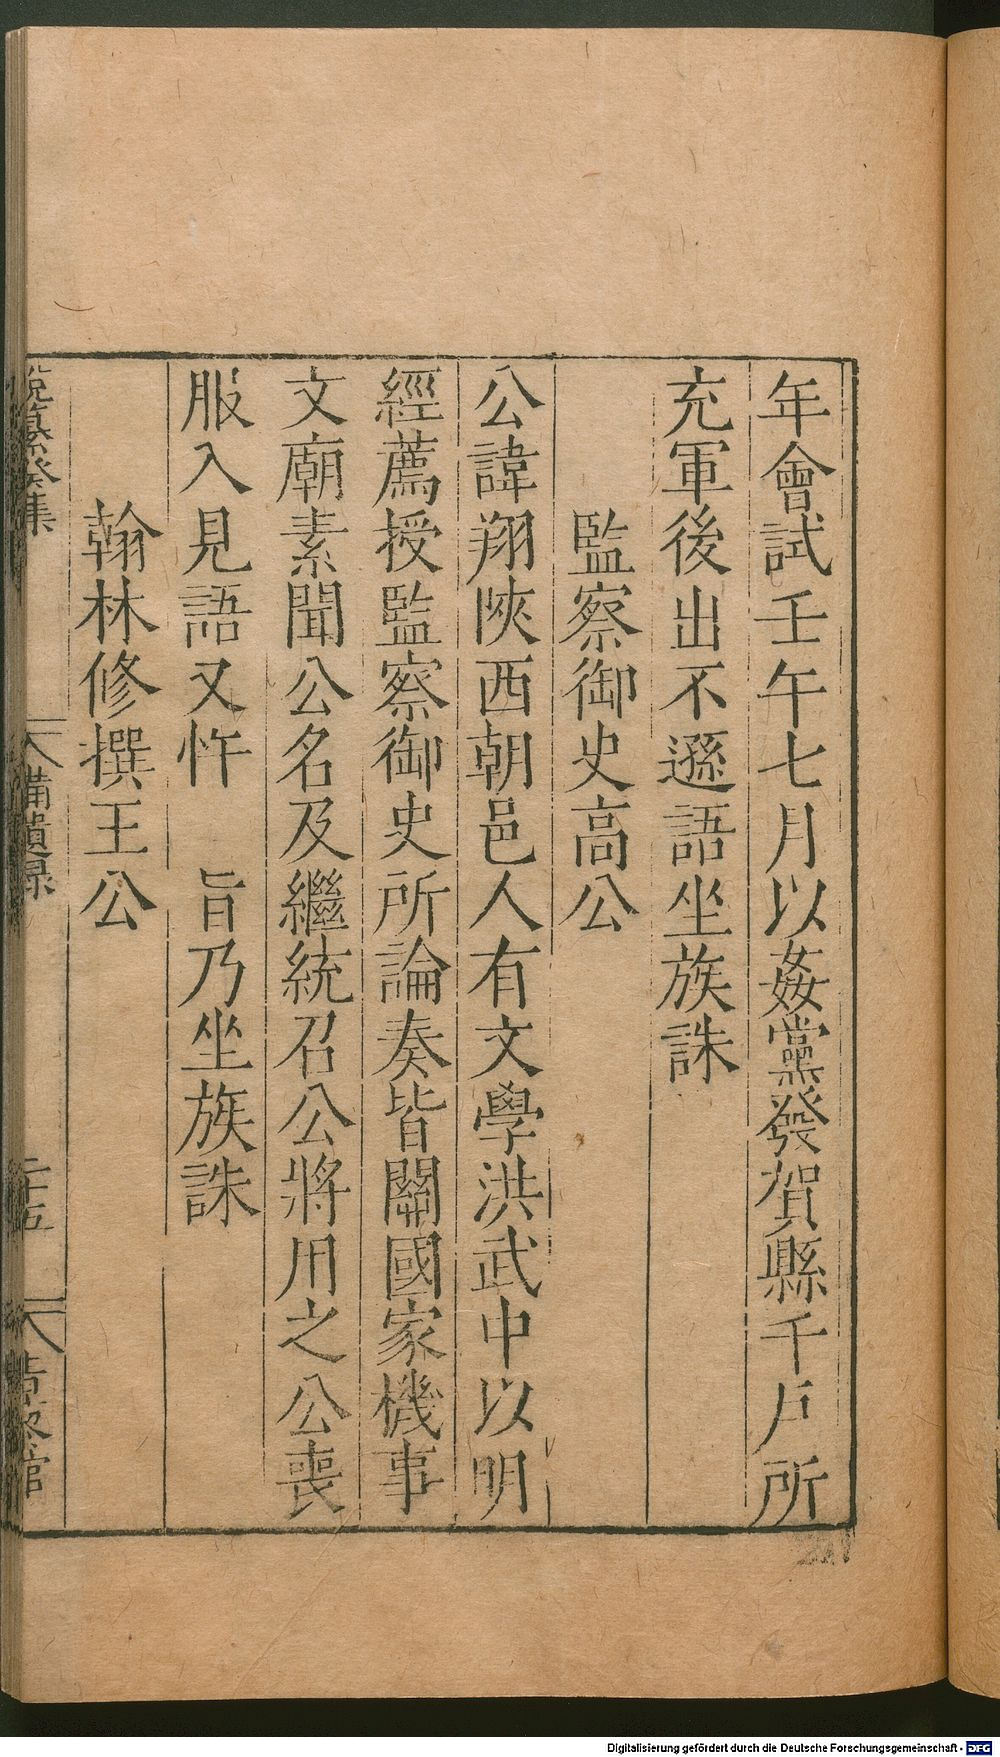 年會試壬午七月以姦黨發賀縣千戶所
充軍後出不遜語坐族誅
監察御史高公
公諱翔陝西朝邑人有文學洪武中以明
經薦授監察御史所論奏皆關國家機事
文廟素聞公名及繼統召公將用之公喪
服入見語又忤　旨乃坐族誅
翰林修撰王公
說纂癸集
備遺錄
二十五
Digitalisierung gefördert durch die Deutsche Forschungsgemeinschaft - DFG